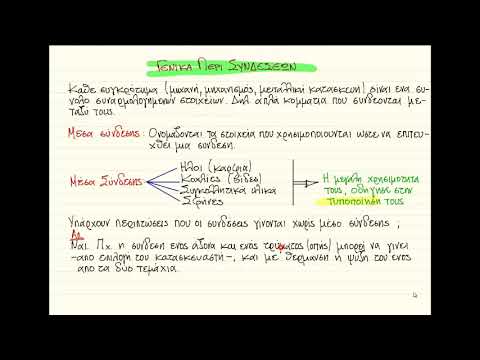 ΓΕΝΙΚΑ ΠΕΡΙ ΣΥΝΔΕΣΕΩΝ
Κάθε συγκρότημα (μηχανή, μηχανισμός, μεταλλική κατασκευή) είναι ένα σύ-
νολο συναρμολογημένων στοιχείων. Δηλ απλά κομμάτια που συνδέονται με-
ταξύ τους.
Μέσα σύνδεσης: Ονομάζονται τα στοιχεία που χρησιμοποιούνται ώστε να επιτευ-
χθεί μια σύνδεση.
Μέσα Σύνδεσης
Ηλοι (καρφιά)
Κοχλίες (βίδες)
Συγκολλητικά υλικά
Σφήνες
Η μεγάλη χρησιμότητα
τους, οδήγησε στην
τυποποίησή τους
Υπάρχουν περιπτώσεις που οι συνδέσεις γίνονται χωρίς μέσο σύνδεσης;
Απ
Ναι. Πχ η σύνδεση ενός άξονα και ενός τρύματος (οπής) μπορεί να γίνει
-από επιλογή του κατασκευαστή-, και με θέρμανση ή ψύξη του ενός
από τα δύο τεμάχια.